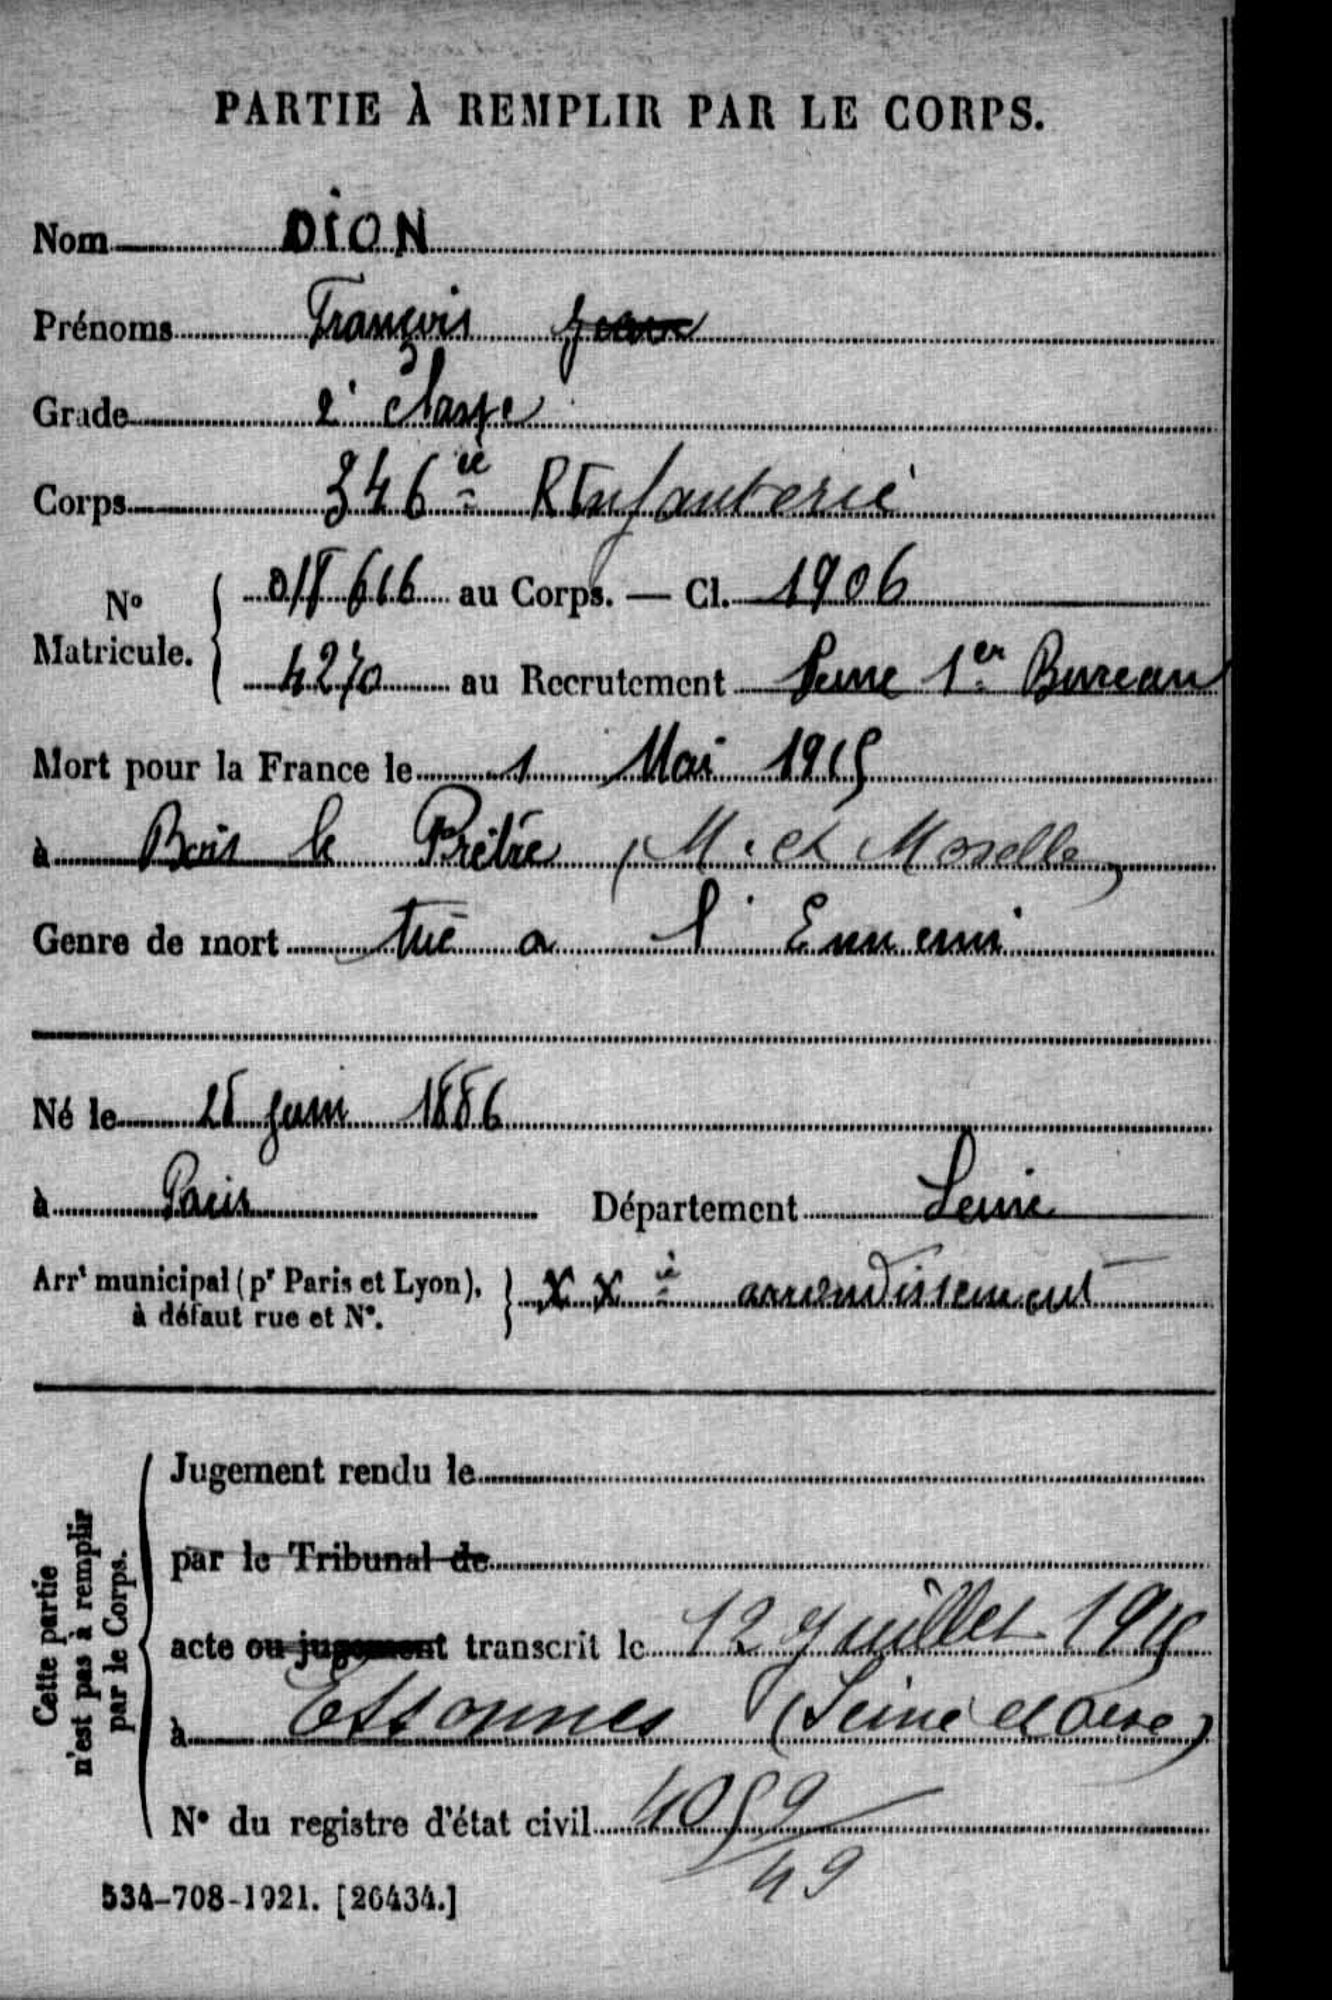 PARTIE À REMPLIR PAR LE CORPS.
Nom DION
Prénoms François Jean
Grade 2e classe
Corps 346 ie R Infanterie
No Matricule. 616 au Corps. — Cl. 1906
4270 au Recrutement Seine 1er Bureau
Mort pour la France le 1 Mai 1915
à Bois le Prêtre (M. et Moselle)
Genre de mort tué a l'Ennemi
Né le 28 Juin 1886
à Paris Département Seine
Arrt municipal (pr Paris et Lyon), XX è arrondissement
à défaut rue et No.
Cette partie
n'est pas à remplir
par le Corps.
Jugement rendu le
par le Tribunal de
acte ou jugement transcrit le 12 Juillet 1915
à Essonnes (Seine et Oise)
No du registre d'état civil 4059/49
534-708-1921. [26434.]